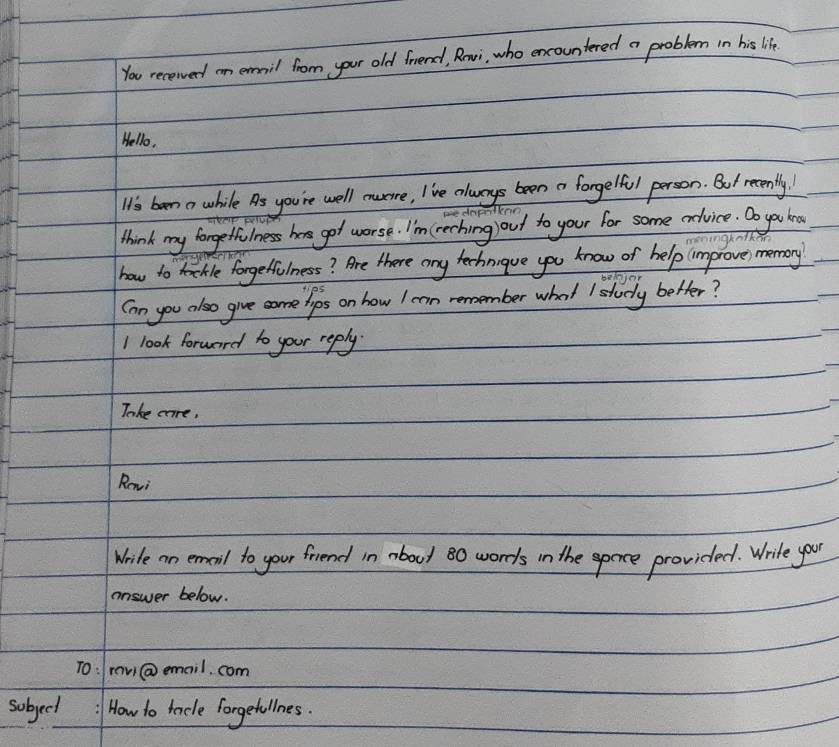 You received an email from your old friend, Ravi, who encountered a problem in his life.
Hello,
It's been a while As you're well aware, I've always been a forgelful person. But recently, I
sikap pelupa mendapatkan
think my forgetfulness has got worse. I'm (reching) out to your for some advice. Do you know
menyelesaikan meningkatkan
how to tackle forgetfulness? Are there any technique you know of help (improve) memory?
tips belajar
Can you also give some tips on how I can remember what I study better?
I look forward to your reply.
Take care,
Ravi
Write an email to your friend in about 80 words in the space provided. Write your
answer below.
To : ravi@email.com
Subject : How to tacle forgetullnes.